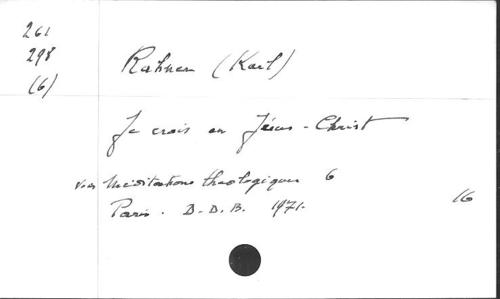 261
298
(6)
Rahner (Karl)
Je crois en Jésus-Christ
Méditations théologiques 6
Paris. D.D.B. 1971.
16